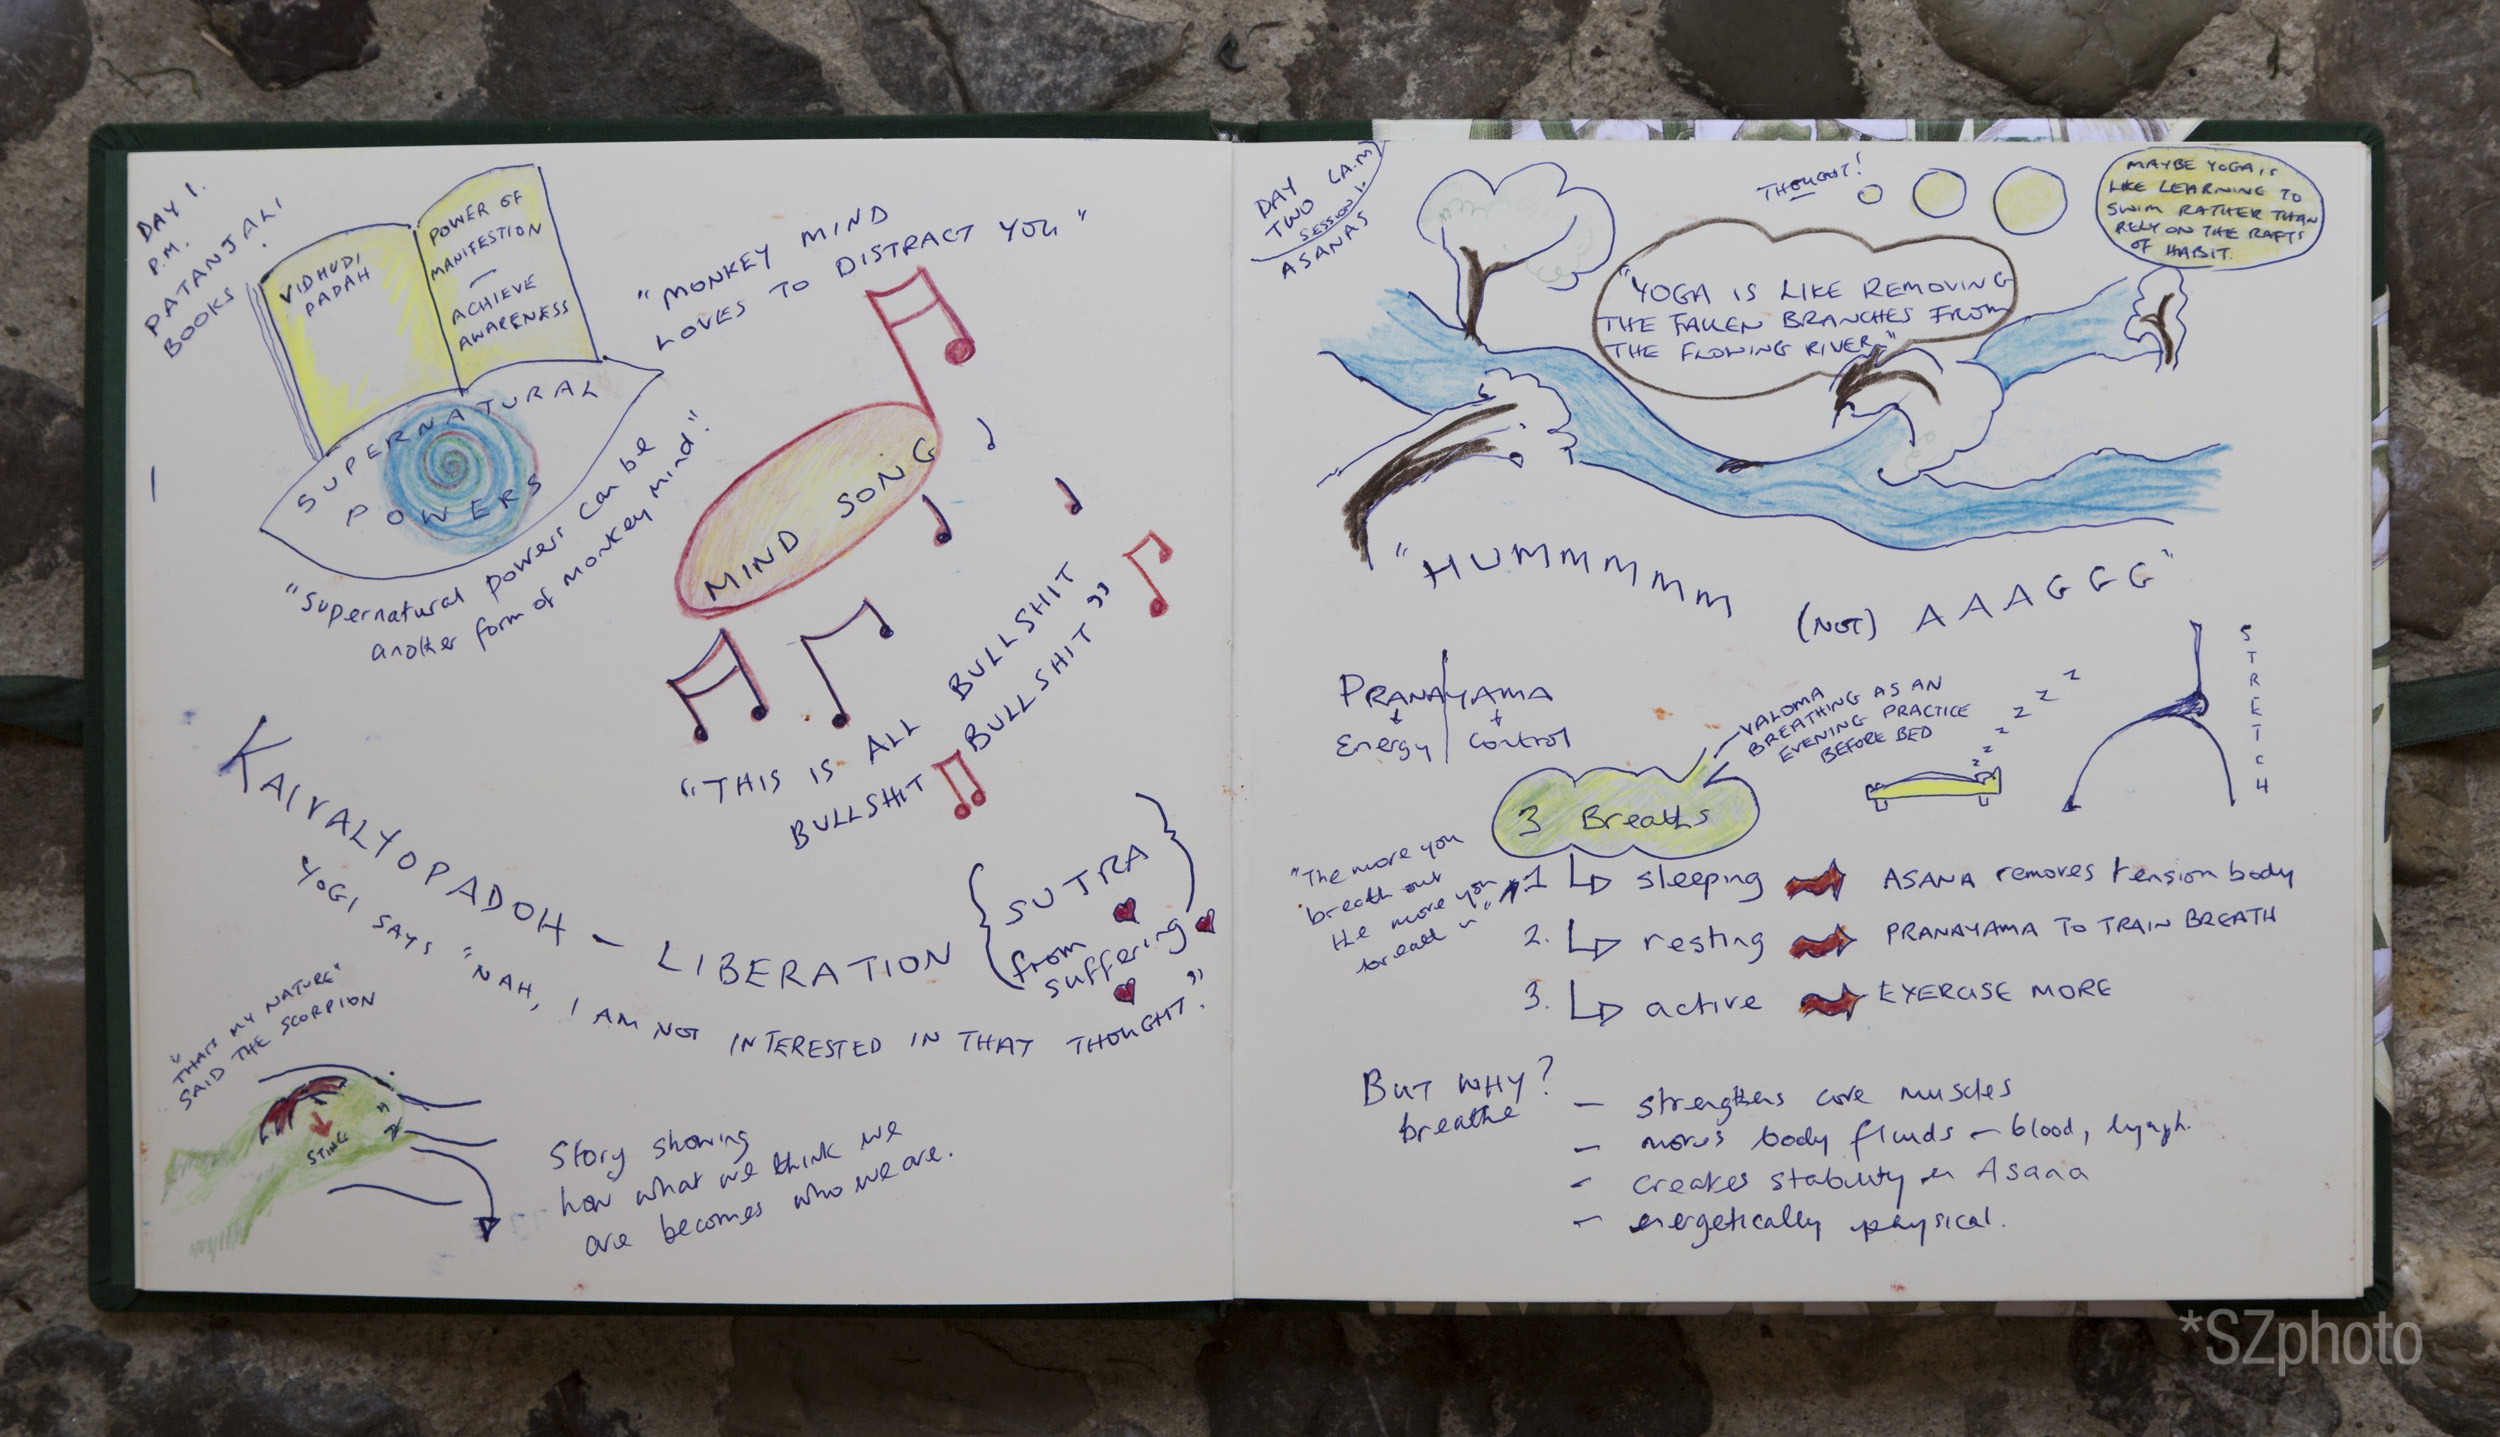 DAY 1.
P.M.
PATANJALI
BOOKS
VIDHUDI
PADAH
POWER OF
MANIFESTION
—
ACHIEVE
AWARENESS
SUPERNATURAL
POWERS
"Supernatural powers can be
another form of monkey mind".
"MONKEY MIND
LOVES TO DISTRACT YOU"
MIND SONG
"THIS IS ALL BULLSHIT
BULLSHIT BULLSHIT"
KAIVALYOPADOH - LIBERATION
{SUTRA
from
suffering}
YOGI SAYS "NAH, I AM NOT INTERESTED IN THAT THOUGHT."
"THATS MY NATURE"
SAID THE SCORPION
STING
Story showing
how what we think we
are becomes who we are.
DAY
TWO (A.M)
SESSION 1.
ASANAS
THOUGHT!
MAYBE YOGA IS
LIKE LEARNING TO
SWIM RATHER THAN
RELY ON THE RAFTS
OF HABIT.
"YOGA IS LIKE REMOVING
THE FALLEN BRANCHES FROM
THE FLOWING RIVER"
"HUMMMMMM (NOT) AAAGGG"
PRANAYAMA
Energy Control
VALOMA
BREATHING AS AN
EVENING PRACTICE
BEFORE BED
z z z z z z
STRETCH
3 Breaths
"The more you
breath out
the more you
breath in"
1 sleeping ASANA removes tension body
2. resting PRANAYAMA TO TRAIN BREATH
3. active EXERCISE MORE
BUT WHY?
breathe
- strengthens core muscles
- moves body fluids - blood, lymph.
- creates stability in Asana
- energetically physical.
*SZphoto